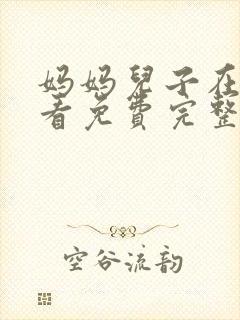 妈妈兒子在
看免費完整
空谷流韵